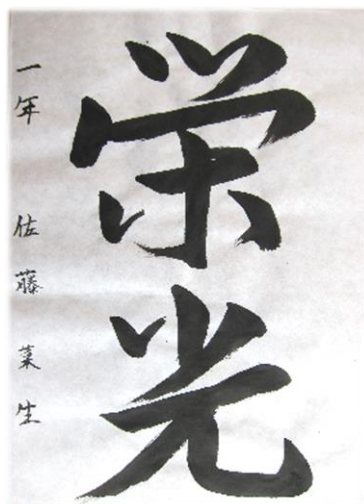 栄光
一年 佐藤菜生